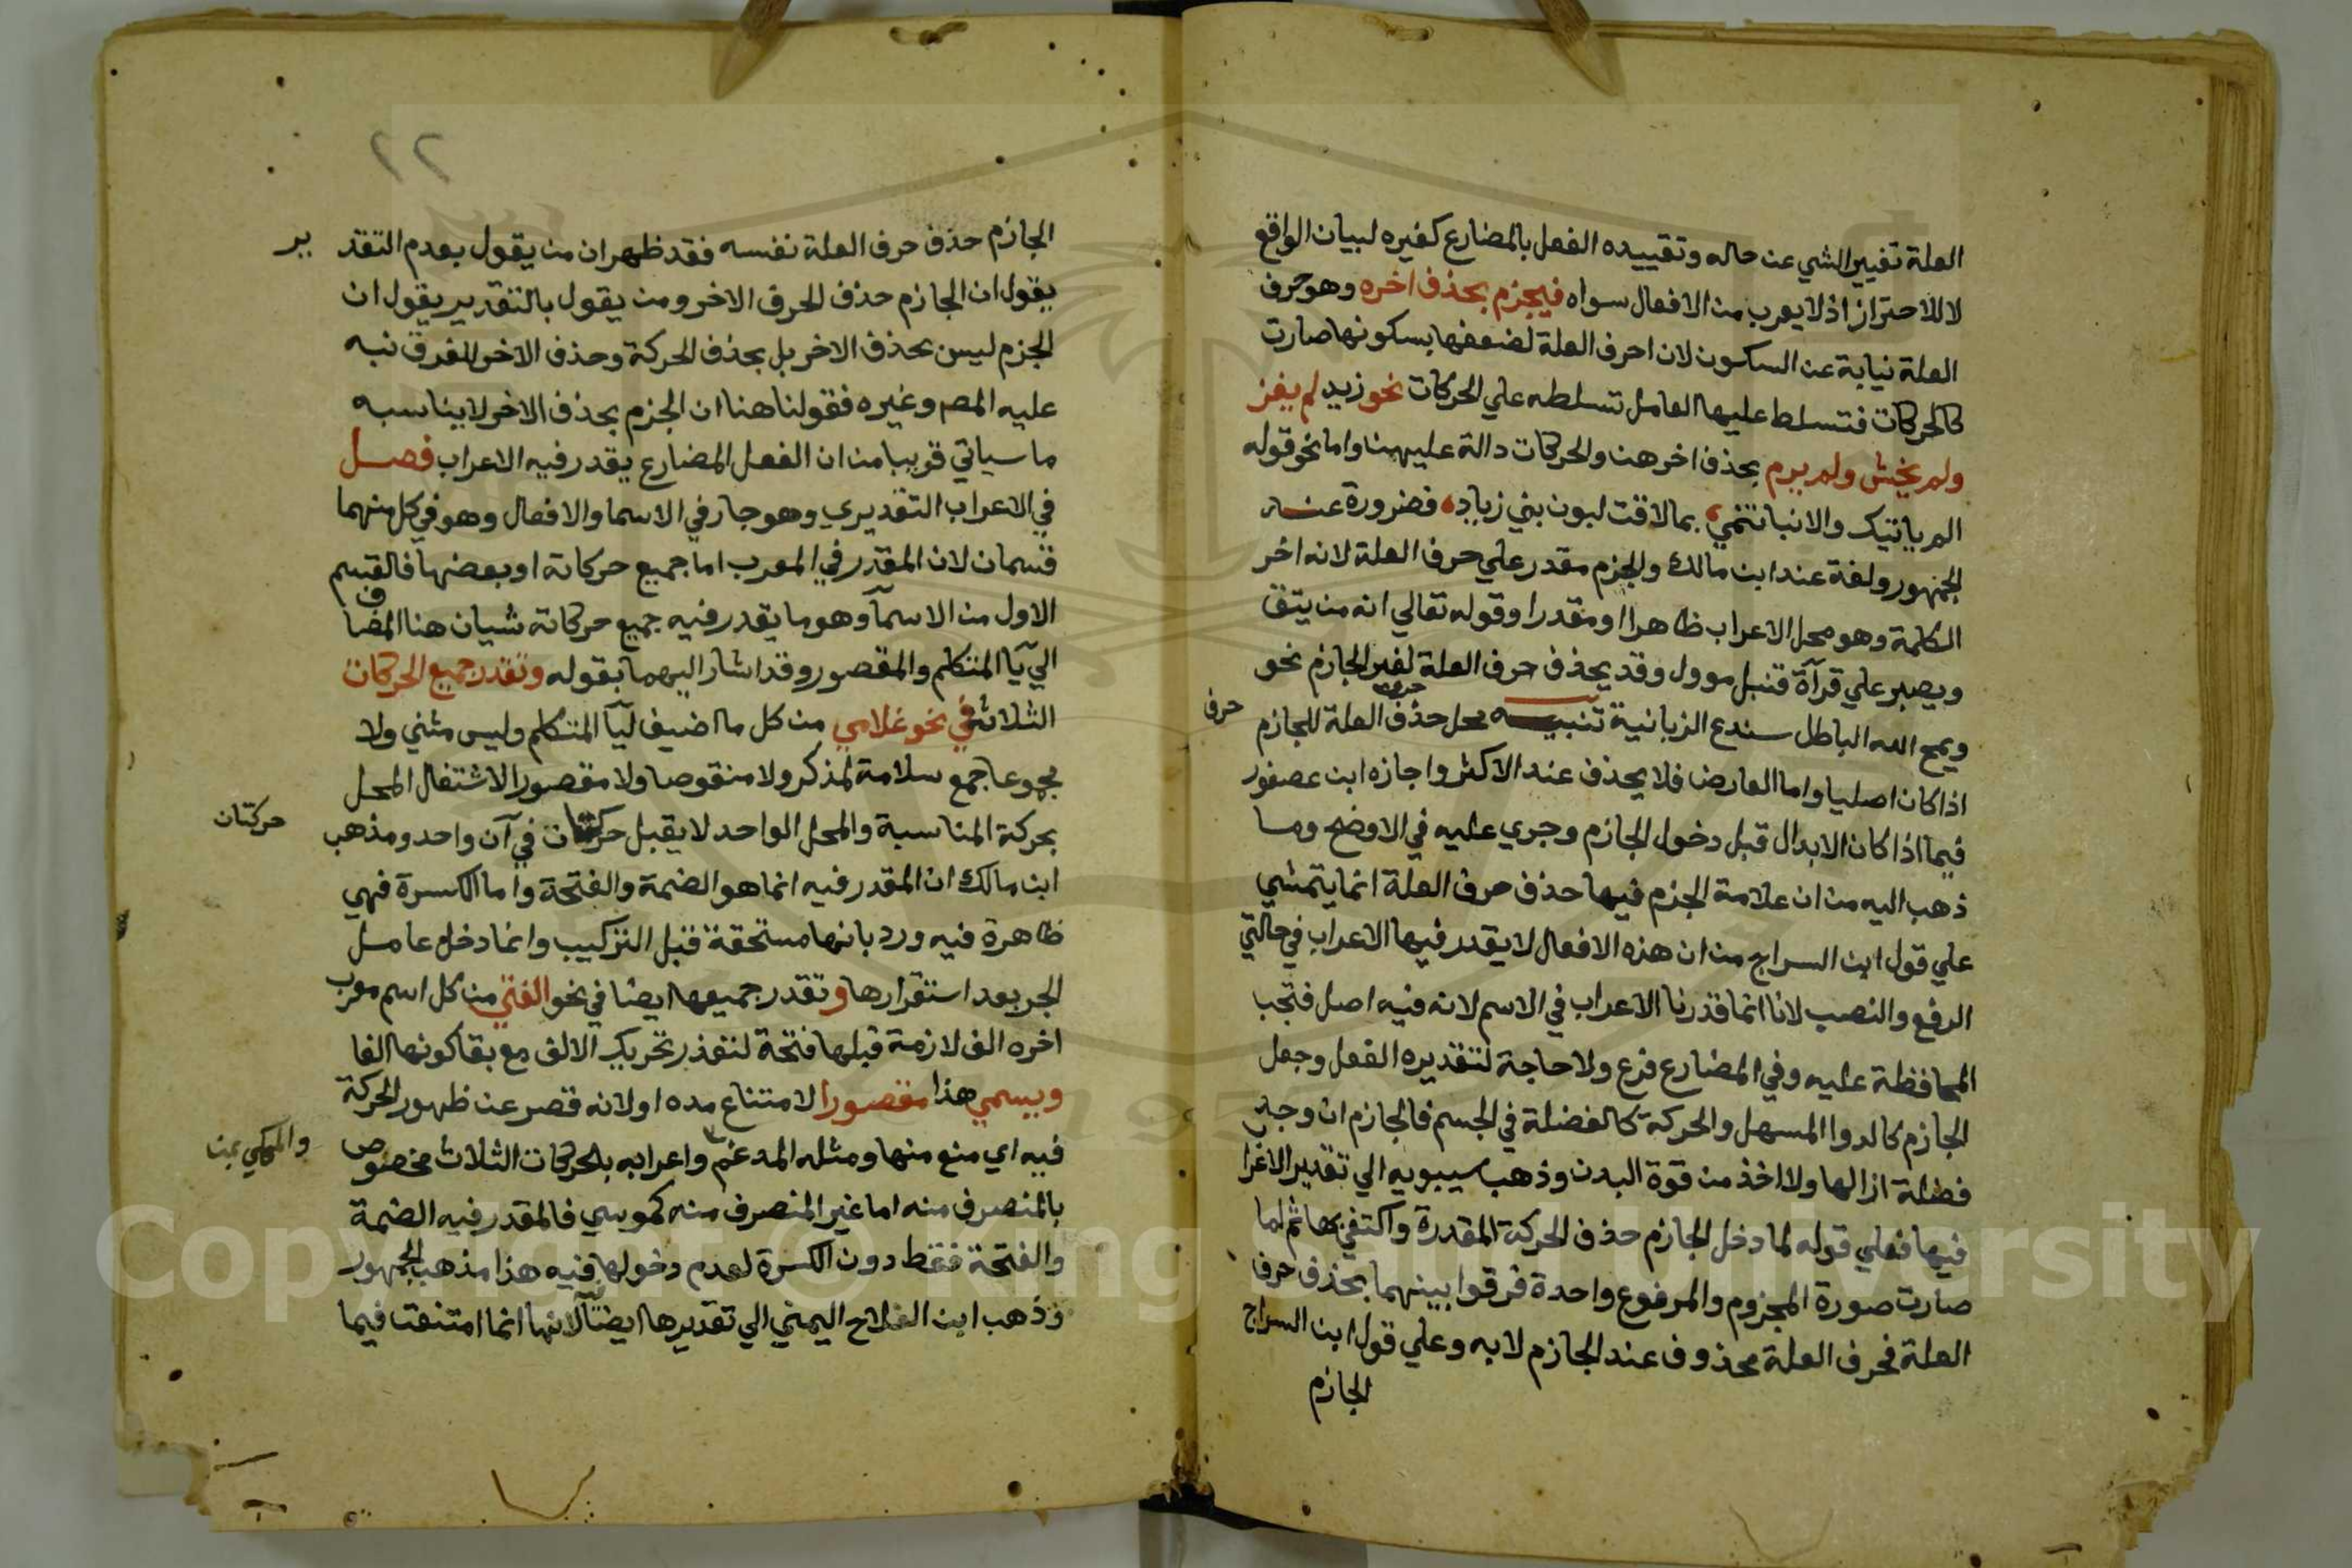 العلة تغيير الشي عن حاله وتقييده الفعل بالمضارع كغيره لبيان الواقع
لا للاحتراز اذ لا يعرب من الافعال سواه فيجزم بحذف اخره وهو حرف
العلة نيابة عن السكون لان احرف العلة لضعفها بسكونها صارت
كالحركات فتسلط عليها العامل تسلطه علي الحركات نحو زيد لم يغز
ولم يخش ولم يرم بحذف اخرهن والحركات دالة عليهن واما نحو قوله
الم ياتيك والانبا تنمي بما لاقت لبون بني زياد فضرورة عند
الجمهور ولغة عند ابن مالك والجزم مقدر علي حرف العلة لانه اخر
الكلمة وهو محل الاعراب ظاهرا او مقدرا وقوله تعالي انه من يتق
ويصبر علي قرآة قنبل موول وقد يحذف حرف العلة لغير الجازم نحو
ويمح الله الباطل سندع الزبانية تنبيه محل حذف حرف العلة للجازم
حرف
اذا كان اصليا واما العارض فلا يحذف عند الاكثر واجازه ابن عصفور
فيما اذا كان الابدال قبل دخول الجازم وجري عليه في الاوضح وما
ذهب اليه من ان علامة الجزم فيها حذف حرف العلة انما يتمشي
علي قول ابن السراج من ان هذه الافعال لا يقدر فيها الاعراب في حالتي
الرفع والنصب لانا انما قدرنا الاعراب في الاسم لانه فيه اصل فتجب
المحافظة عليه وفي المضارع فرع ولا حاجة لتقديره الفعل وجعل
الجازم كالدوا المسهل والحركة كالفضلة في الجسم فالجازم ان وجد
فضلة ازالها ولا اخذ من قوة البدن وذهب سيبويه الي تقدير الاعرا
فيها فعلي قوله لما دخل الجازم حذف الحركة المقدرة واكتفي بها ثم لما
صارت صورة المجزوم والمرفوع واحدة فرقوا بينهما بحذف حرف
العلة فحرف العلة محذوف عند الجازم لا به وعلي قول ابن السراج
الجازم
٢٢
الجازم حذف حرف العلة نفسه فقد ظهر ان من يقول بعدم التقد
ير
يقول ان الجازم حذف الحرف الاخر ومن يقول بالتقدير يقول ان
الجزم ليس بحذف الاخر بل بحذف الحركة وحذف الاخر للفرق نبه
عليه المصر وغيره فقولنا هنا ان الجزم بحذف الاخر لا يناسبه
ما سياتي قريبا من ان الفعل المضارع يقدر فيه الاعراب فصل
في الاعراب التقديري وهو جار في الاسما والافعال وهو في كل منهما
قسمان لان المقدر في المعرب اما جميع حركاته او بعضها فالقسم
الاول من الاسمآ وهو ما يقدر فيه جميع حركاته شيان هنا المضاف
الي يآ المتكلم والمقصور وقد اشار اليهما بقوله وتقدر جميع الحركات
الثلاثة في نحو غلامي من كل ما اضيف ليآ المتكلم وليس مثني ولا
مجموعا جمع سلامة لمذكر ولا منقوصا ولا مقصورا لاشتغال المحل
بحركة المناسبة والمحل الواحد لا يقبل حركتان في آن واحد ومذهب
حركتان
ابن مالك ان المقدر فيه انما هو الضمة والفتحة واما الكسرة فهي
ظاهرة فيه ورد بانها مستحقة قبل التركيب وانما دخل عامل
الجر بعد استقرارها وتقدر جميعها ايضا في نحو الفتي من كل اسم معرب
اخره الف لازمة قبلها فتحة لتعذر تحريك الالف مع بقا كونها الفا
ويسمي هذا مقصورا لامتناع مده او لانه قصر عن ظهور الحركة
فيه اي منع منها ومثله المدغم واعرابه بالحركات الثلاث مخصوص
والمحكي بمن
بالمنصرف منه اما غير المنصرف منه كموسي فالمقدر فيه الضمة
والفتحة فقط دون الكسرة لعدم دخولها فيه هذا مذهب الجمهور
وذهب ابن الفلاح اليمني الي تقديرها ايضا لانها انما امتنعت فيما
Copyright © King Saud University